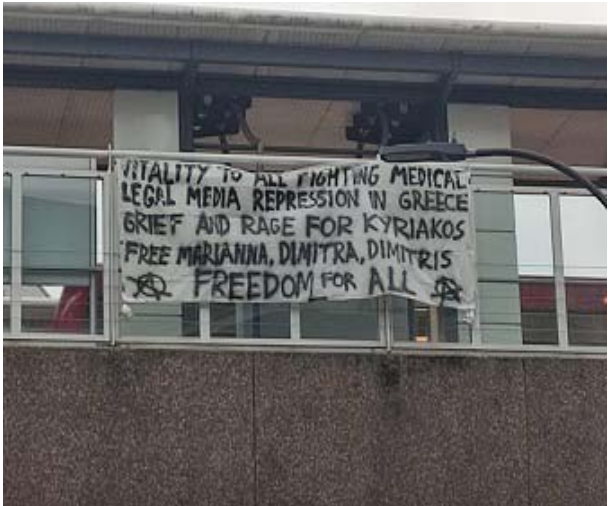 VITALITY TO ALL FIGHTING MEDICAL
LEGAL MEDIA REPRESSION IN GREECE
GRIEF AND RAGE FOR KYRIAKOS
FREE MARIANNA, DIMITRA, DIMITRIS
FREEDOM FOR ALL